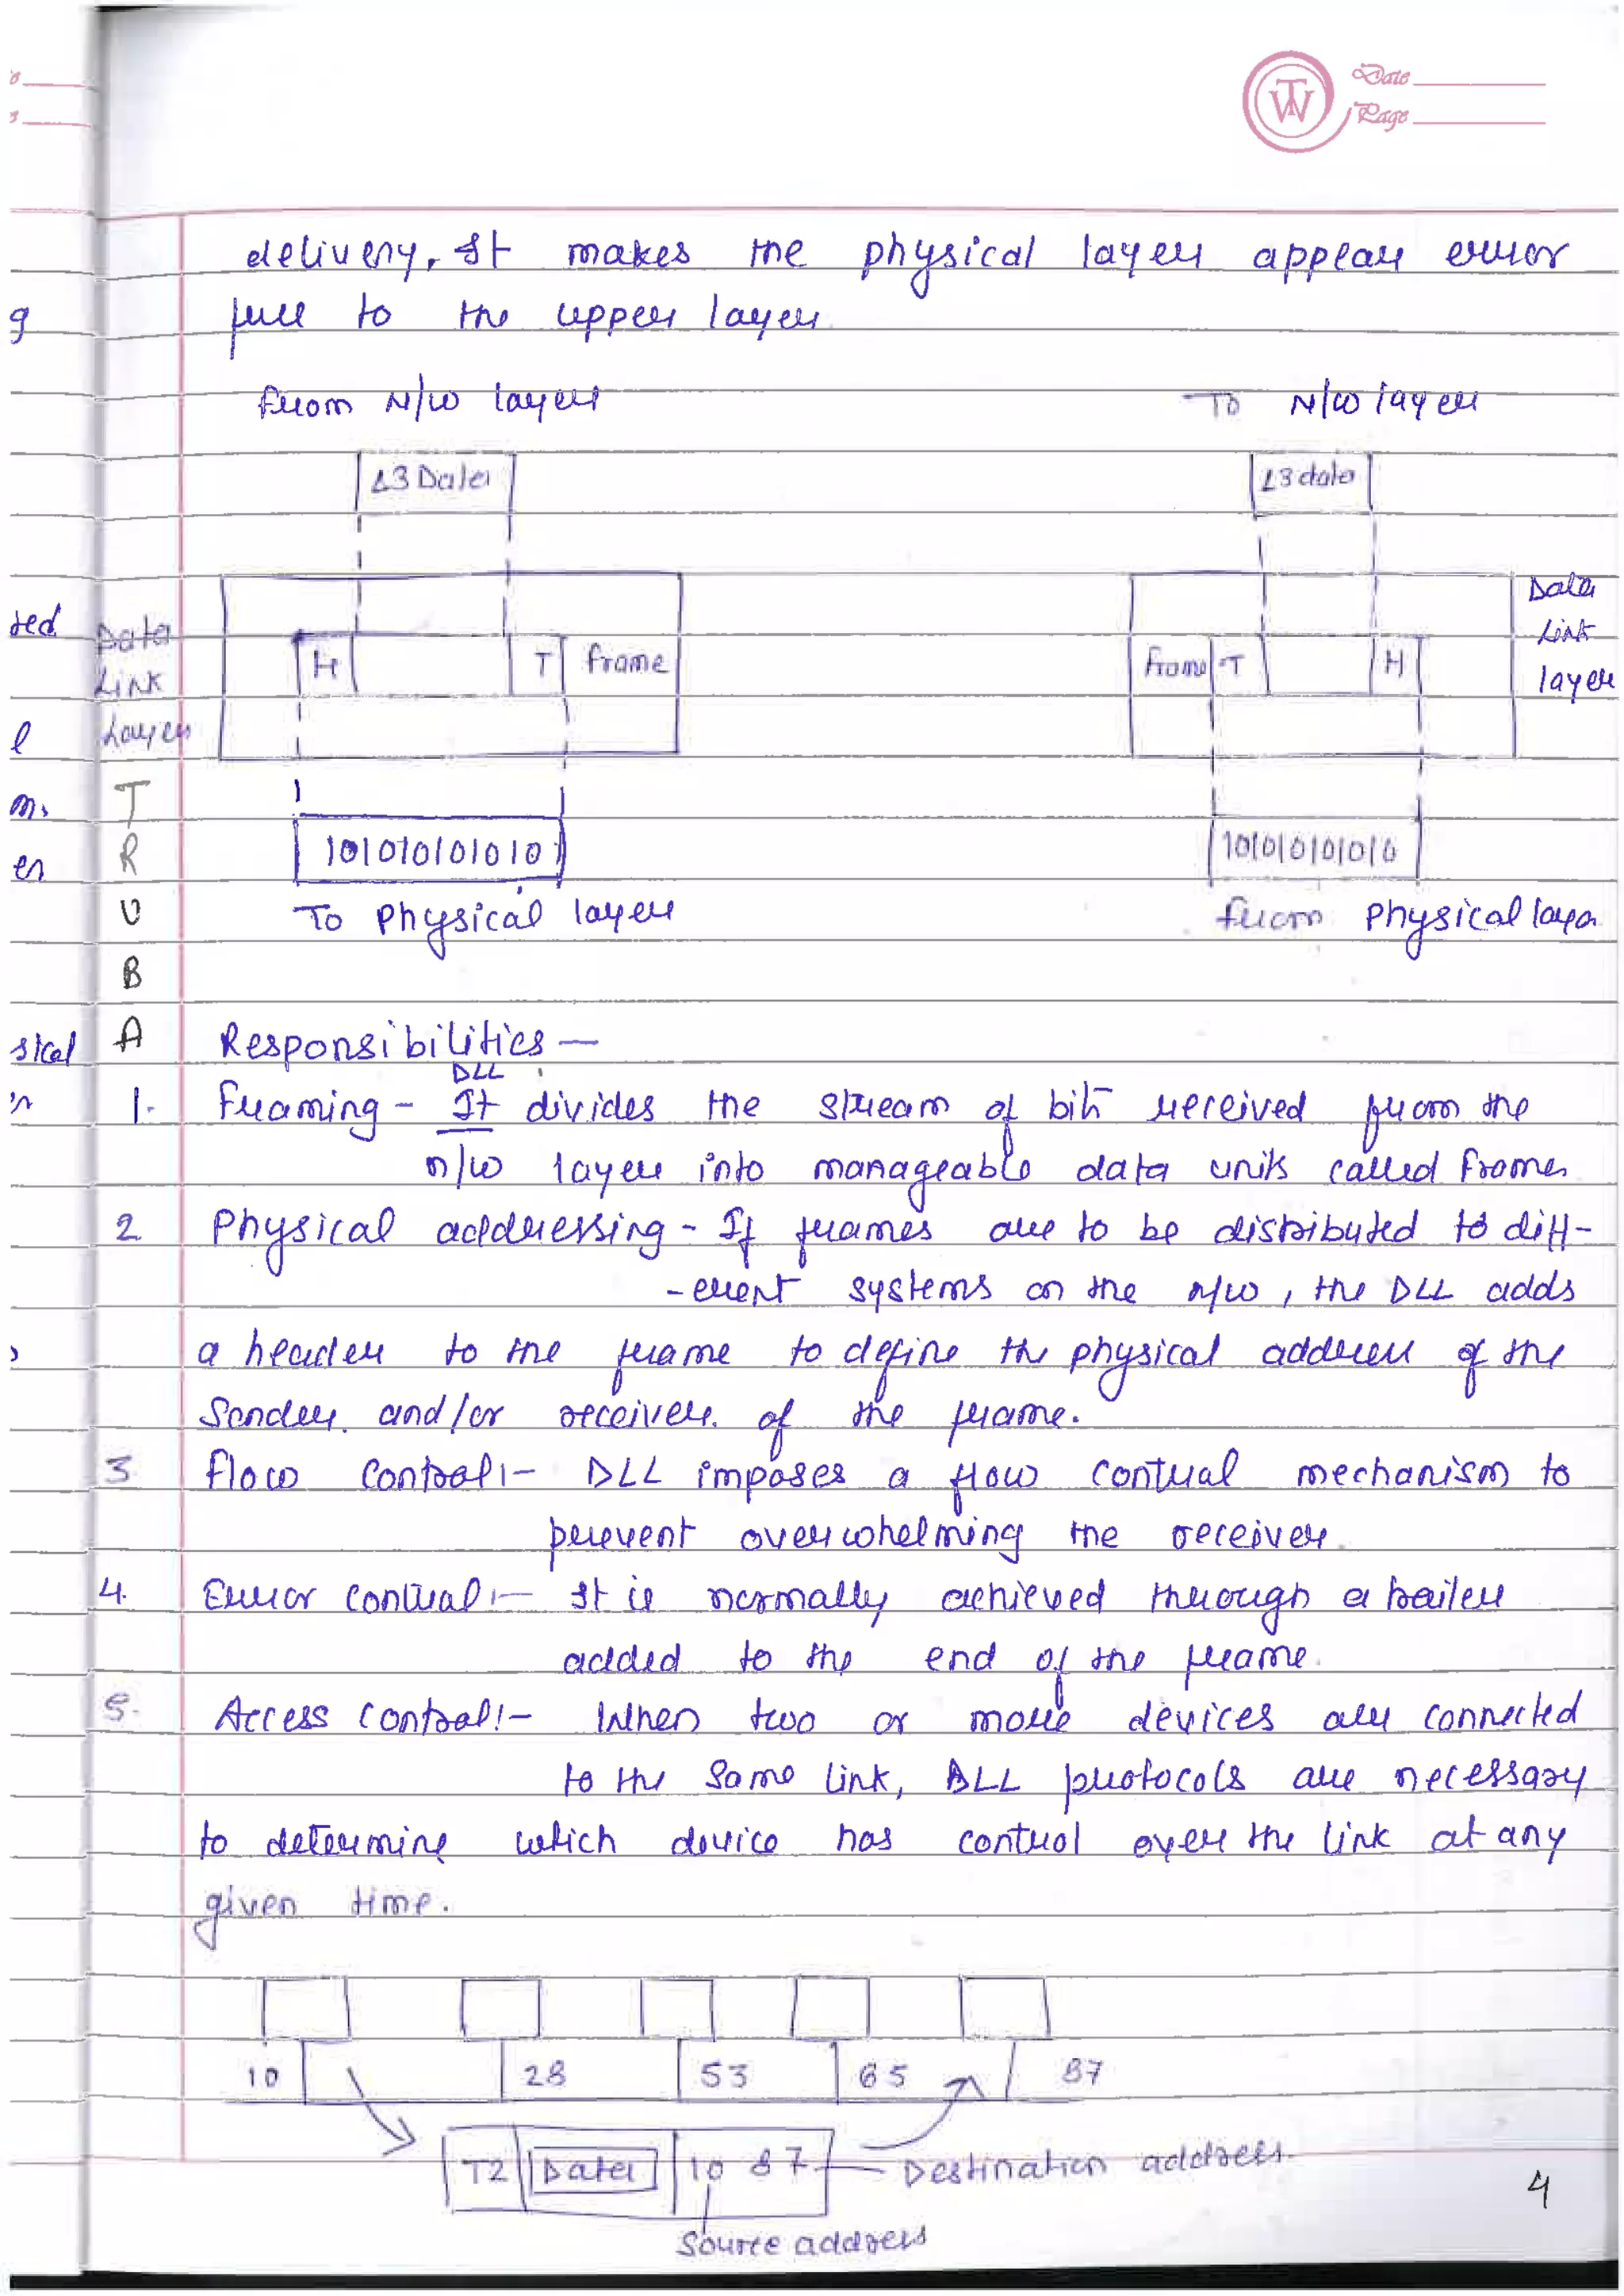 Date
Page
delivery. It makes the physical layer appear error
free to the upper layer.
from N/W layer
To N/W layer
L3 Data
L3 data
Data
Link
Layer
H
T
frame
frame
T
H
Data
Link
layer
T
R
U
B
A
10101010101010
101010101010
To Physical layer
from Physical layer
Responsibilities —
DLL
1. Framing - It divides the stream of bits received from the
n/w layer into manageable data units called frames
2 Physical addressing - If frames are to be distributed to diff-
-erent systems on the n/w, the DLL adds
a header to the frame to define the physical address of the
Sender and/or receiver of the frame.
3 Flow Control :- DLL imposes a flow control mechanism to
prevent overwhelming the receiver.
4. Error control :- It is normally achieved through a trailer
added to the end of the frame.
5. Access control :- When two or more devices are connected
to the same link, DLL protocols are necessary
to determine which device has control over the link at any
given time.
10 28 53 65 87
T2 Data 10 87 Destination address.
Source address
4
g
ted
l
m.
en
sical